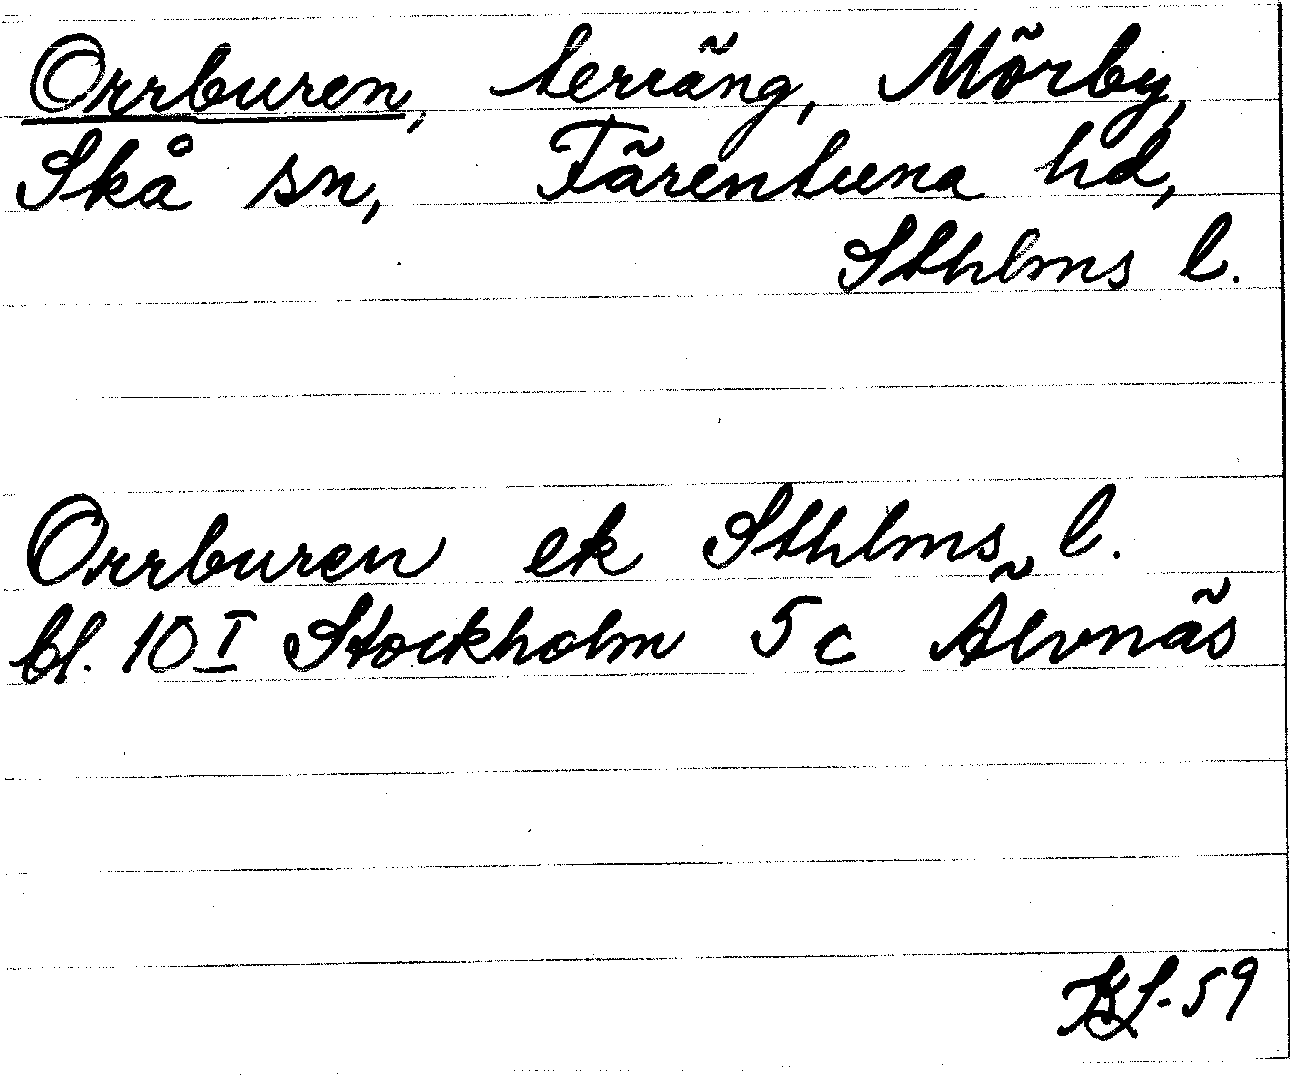 Orrburen, terräng, Mörby,
Skå sn, Färentuna hd,
Sthlms l.
Orrburen ek Sthlms l.
bl. 10 I Stockholm 5 c Älvnäs
-59